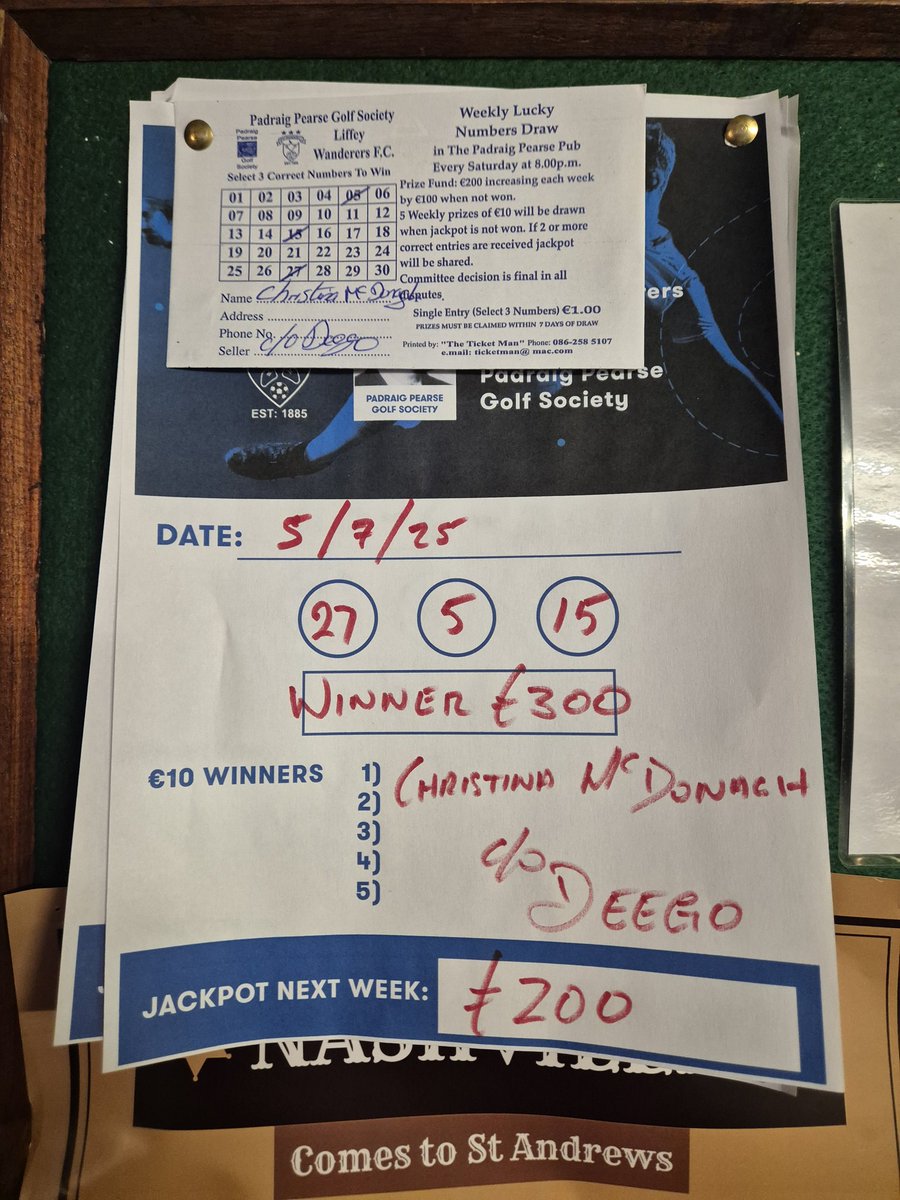 Padraig Pearse Golf Society
Liffey
Wanderers F.C.
Padraig
Pearse
Golf
Society
Select 3 Correct Numbers To Win
01 02 03 04 05 06
07 08 09 10 11 12
13 14 15 16 17 18
19 20 21 22 23 24
25 26 27 28 29 30
Name Christina McDonagh
Address
Phone No.
Seller c/o Deego
Weekly Lucky
Numbers Draw
in The Padraig Pearse Pub
Every Saturday at 8.00p.m.
Prize Fund: €200 increasing each week
by €100 when not won.
5 Weekly prizes of €10 will be drawn
when jackpot is not won. If 2 or more
correct entries are received jackpot
will be shared.
Committee decision is final in all
Single Entry (Select 3 Numbers) €1.00
PRIZES MUST BE CLAIMED WITHIN 7 DAYS OF DRAW
Printed by: "The Ticket Man" Phone: 086-258 5107
e.mail: ticketman@ mac.com
ers
EST: 1885
PADRAIG PEARSE
GOLF SOCIETY
Padraig Pearse
Golf Society
DATE: 5/7/25
27 5 15
WINNER £300
€10 WINNERS 1) CHRISTINA McDONAGH
2)
3)
4) c/o
5) DEEGO
JACKPOT NEXT WEEK: £200
NASHVILLE
Comes to St Andrews